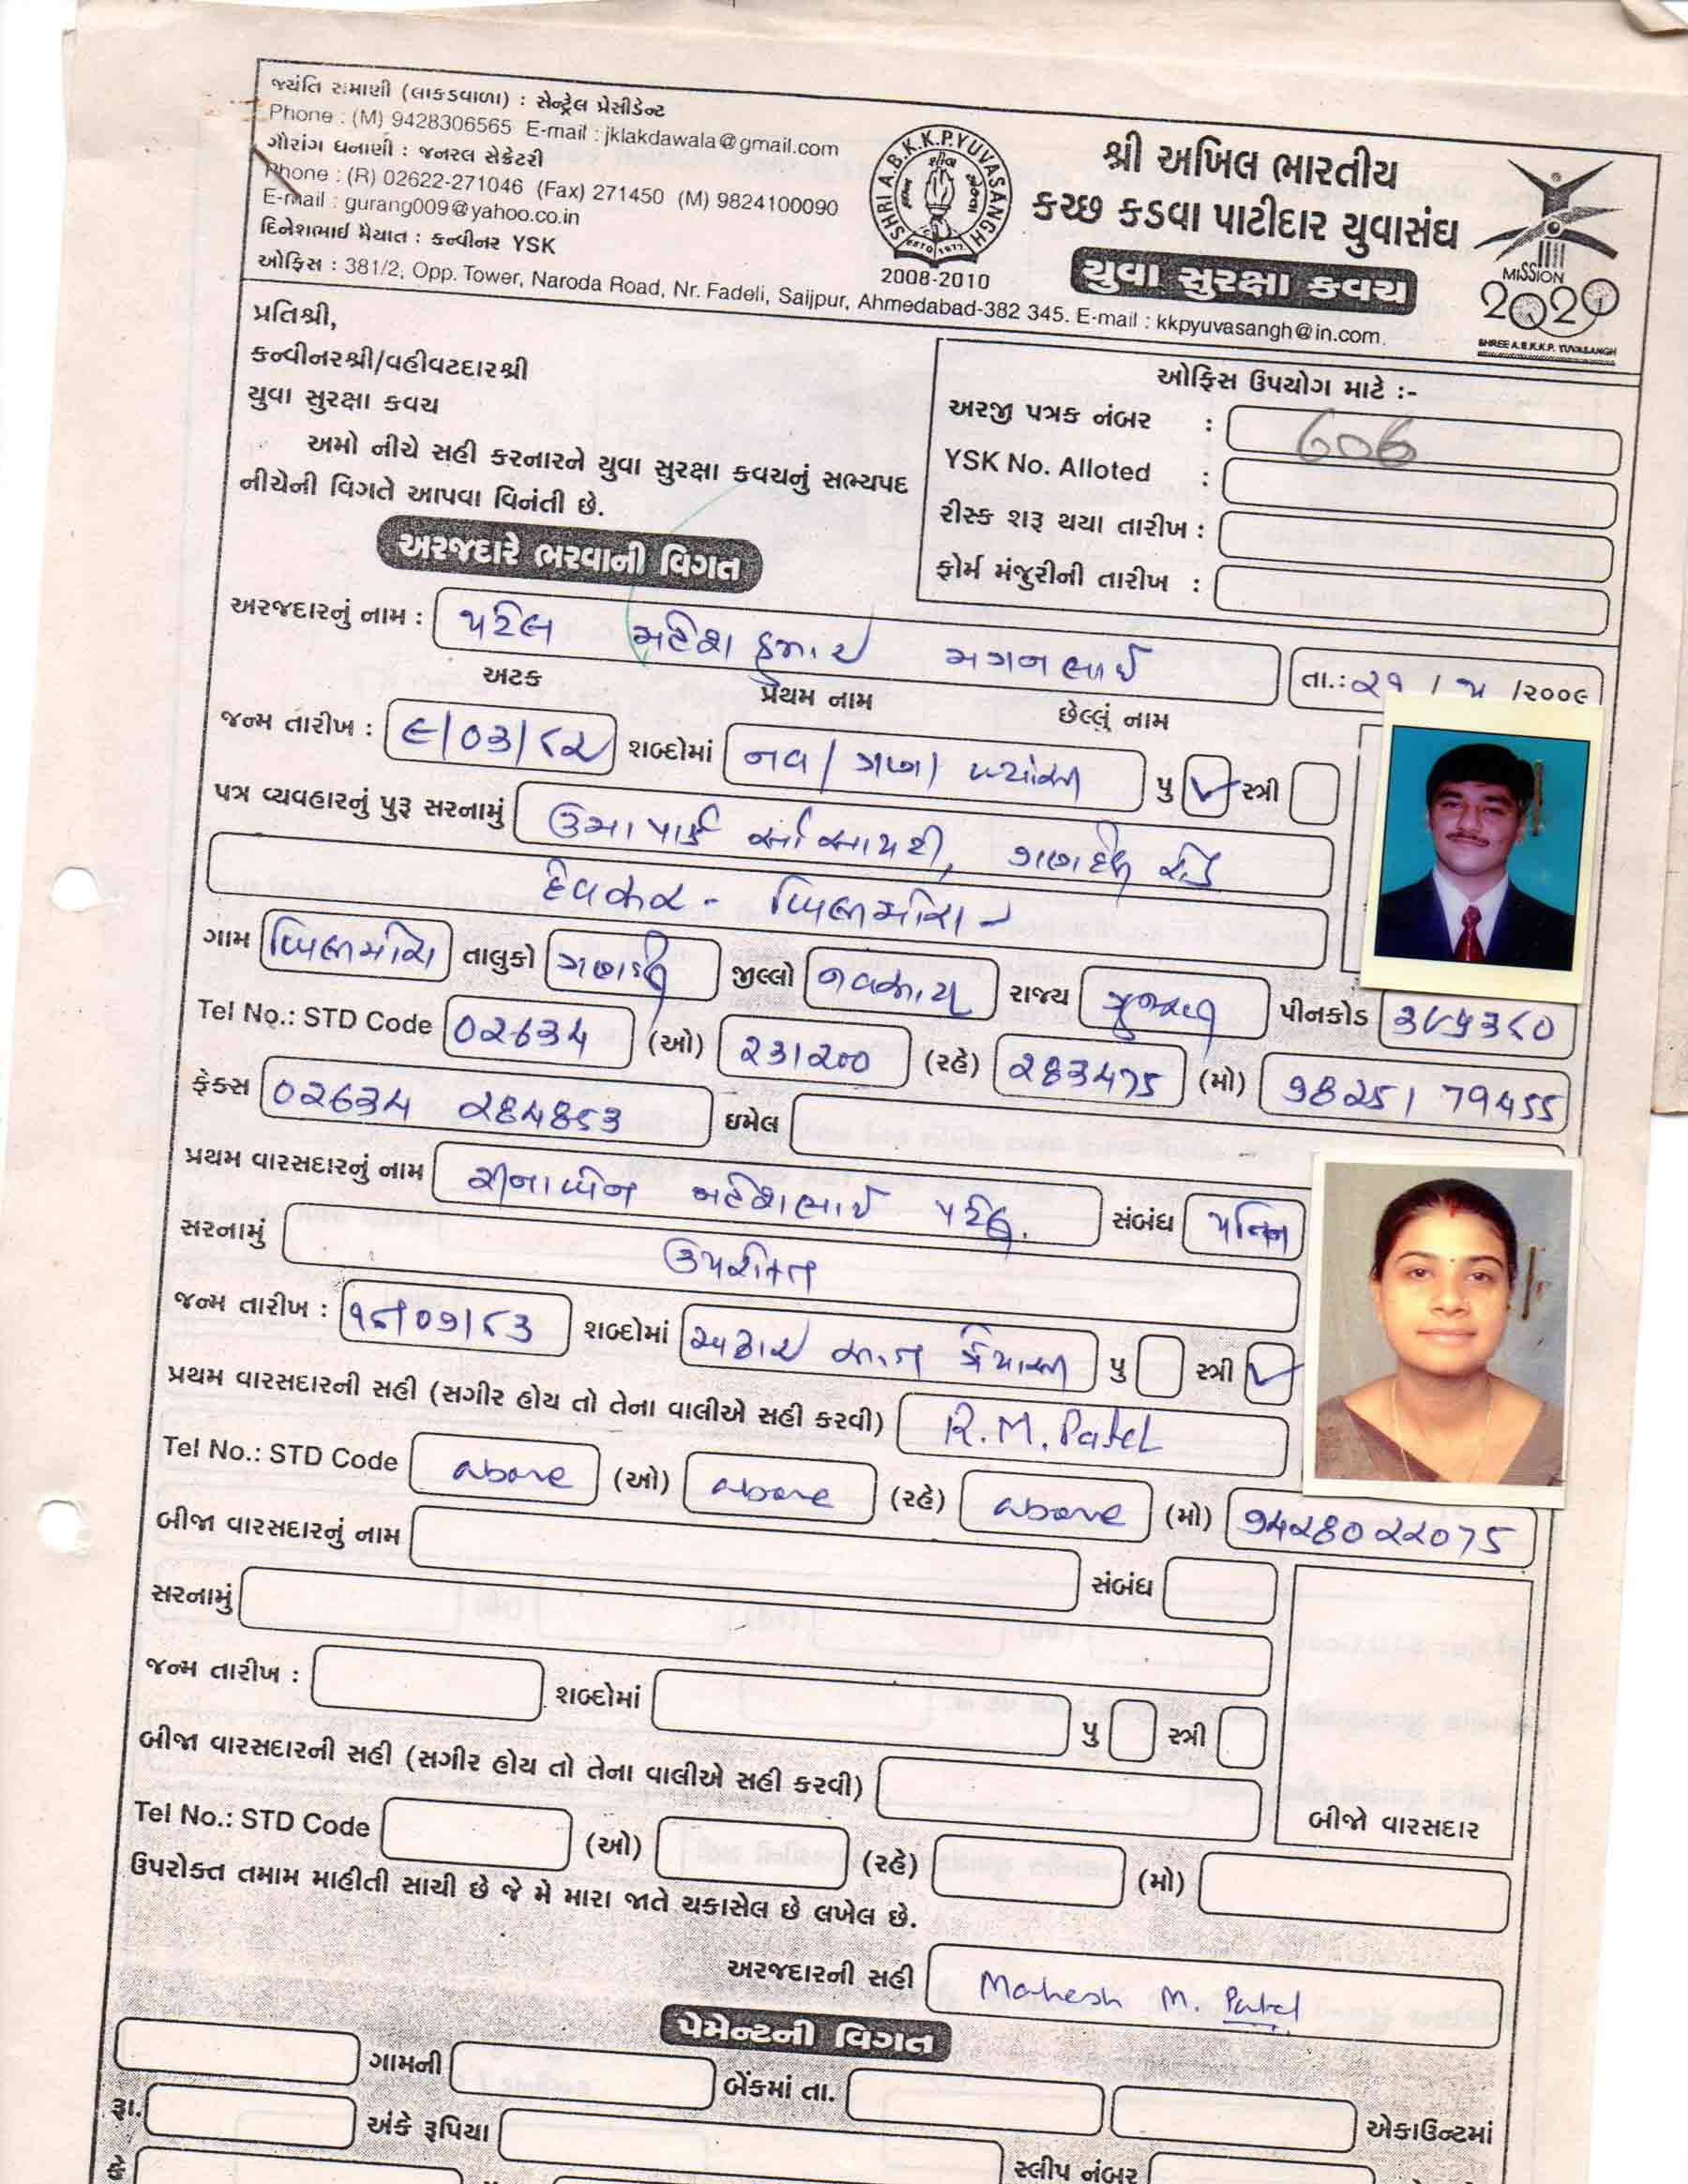 જયંતિ રામાણી (લાકડાવાળા) : સેન્ટ્રેલ પ્રેસીડેન્ટ
Phone : (M) 9428306565 E-mail : jklakdawala@gmail.com
ગૌરાંગ ધનાણી : જનરલ સેક્રેટરી
Phone : (R) 02622-271046 (Fax) 271450 (M) 9824100090
E-mail : gurang009@yahoo.co.in
દિનેશભાઈ મૈયાત : કન્વીનર YSK
ઓફિસ : 381/2, Opp. Tower, Naroda Road, Nr. Fadeli, Saijpur, Ahmedabad-382 345. E-mail : kkpyuvasangh@in.com.
SHRI A.B.K.K.P. YUVASANGH
ESTD 1977
2008-2010
શ્રી અખિલ ભારતીય
કચ્છ કડવા પાટીદાર યુવાસંઘ
યુવા સુરક્ષા કવચ
MISSION
2020
SHREE A.B.K.K.P. YUVASANGH
પ્રતિશ્રી,
કન્વીનરશ્રી/વહીવટદારશ્રી
યુવા સુરક્ષા કવચ
અમો નીચે સહી કરનારને યુવા સુરક્ષા કવચનું સભ્યપદ
નીચેની વિગતે આપવા વિનંતી છે.
ઓફિસ ઉપયોગ માટે :-
અરજી પત્રક નંબર : 606
YSK No. Alloted :
રીસ્ક શરૂ થયા તારીખ :
ફોર્મ મંજુરીની તારીખ :
અરજદારે ભરવાની વિગત
અરજદારનું નામ : પટેલ મહેશકુમાર મગનભાઈ તા.: ૨૧ / ૫ /૨૦૦૯
અટક પ્રથમ નામ છેલ્લું નામ
જન્મ તારીખ : ૯/૦૩/૮૨ શબ્દોમાં નવ / ત્રણ / બ્યાંસી પુ ✓ સ્ત્રી
પત્ર વ્યવહારનું પુરૂ સરનામું ઉમા પાર્ક સોસાયટી, ગણદેવી રોડ
દેવસર - બિલીમોરા -
ગામ બિલીમોરા તાલુકો ગણદેવી જીલ્લો નવસારી રાજ્ય ગુજરાત પીનકોડ ૩૯૫૩૮૦
Tel No.: STD Code 02634 (ઓ) 231200 (રહે) 283475 (મો) 98251 79455
ફેક્સ 02634 284853 ઇમેલ
પ્રથમ વારસદારનું નામ રીનાબેન મહેશભાઈ પટેલ. સંબંધ પત્નિ
સરનામું ઉપરોક્ત
જન્મ તારીખ : ૧૮/૦૭/૮૩ શબ્દોમાં અઢાર સાત ત્રેયાસી પુ સ્ત્રી ✓
પ્રથમ વારસદારની સહી (સગીર હોય તો તેના વાલીએ સહી કરવી) R.M.Patel
Tel No.: STD Code above (ઓ) above (રહે) above (મો) 9428022075
બીજા વારસદારનું નામ સંબંધ
સરનામું
જન્મ તારીખ : શબ્દોમાં પુ સ્ત્રી
બીજા વારસદારની સહી (સગીર હોય તો તેના વાલીએ સહી કરવી)
બીજો વારસદાર
Tel No.: STD Code (ઓ) (રહે) (મો)
ઉપરોક્ત તમામ માહીતી સાચી છે જે મે મારા જાતે ચકાસેલ છે લખેલ છે.
અરજદારની સહી Mahesh M. Patel
પેમેન્ટની વિગત
ગામની બેંકમાં તા. એકાઉન્ટમાં
રૂા. અંકે રૂપિયા સ્લીપ નંબર